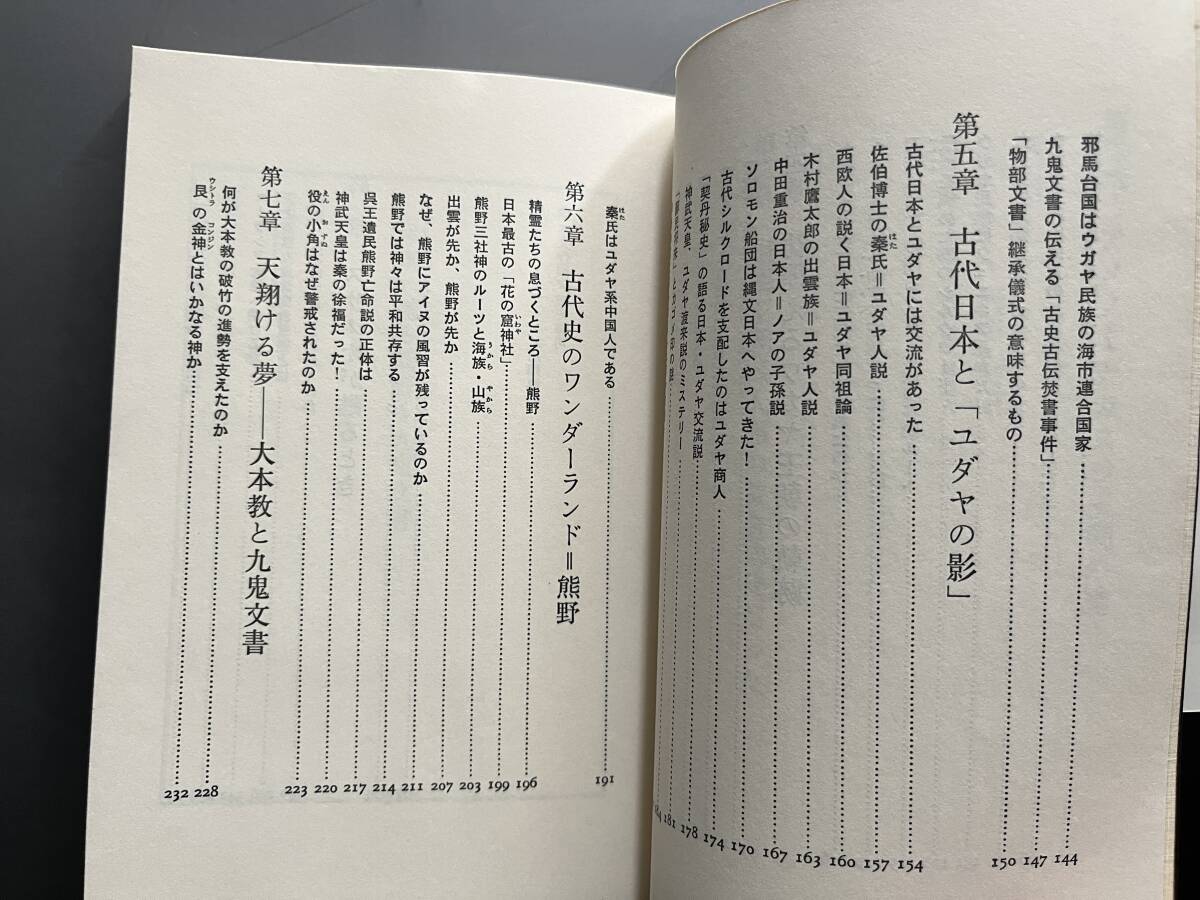 邪馬台国はウガヤ民族の海市連合国家………144
九鬼文書の伝える「古史古伝焚書事件」………147
「物部文書」継承儀式の意味するもの………150
第五章 古代日本と「ユダヤの影」
古代日本とユダヤには交流があった………154
佐伯博士の秦氏＝ユダヤ人説………157
はた
西欧人の説く日本＝ユダヤ同祖論………160
木村鷹太郎の出雲族＝ユダヤ人説………163
中田重治の日本人＝ノアの子孫説………167
ソロモン船団は縄文日本へやってきた！………170
古代シルクロードを支配したのはユダヤ商人………174
「契丹秘史」の語る日本・ユダヤ交流説………178
神武天皇、ユダヤ渡来説のミステリー………181
秦氏はユダヤ系中国人である………191
はた
第六章 古代史のワンダーランド＝熊野
精霊たちの息づくところ――熊野………196
日本最古の「花の窟神社」………199
いわや
熊野三社神のルーツと海族・山族………203
うから やから
出雲が先か、熊野が先か………207
なぜ、熊野にアイヌの風習が残っているのか………211
熊野では神々は平和共存する………214
呉王遺民熊野亡命説の正体は………217
神武天皇は秦の徐福だった！………220
役の小角はなぜ警戒されたのか………223
えん おずぬ
第七章 天翔ける夢――大本教と九鬼文書
何が大本教の破竹の進勢を支えたのか………228
艮の金神とはいかなる神か………232
ウシトラ コンジン